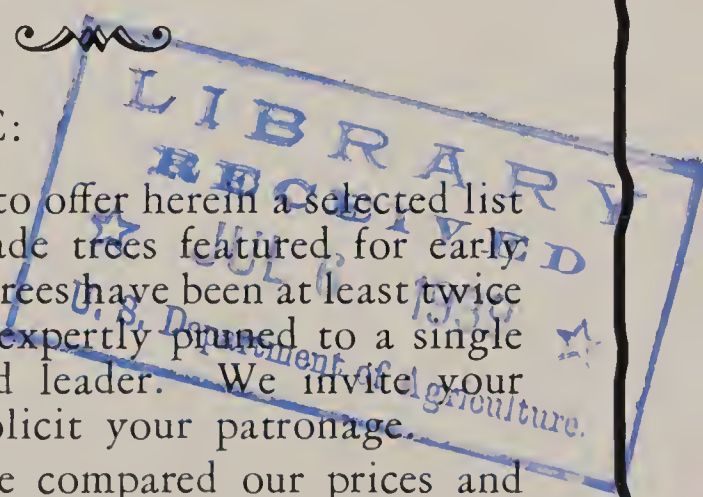 E:
to offer herein a selected list
ade trees featured for early
rees have been at least twice
expertly pruned to a single
d leader. We invite your
olicit your patronage.
e compared our prices and
LIBRARY
RECEIVED
☆ JUL 6 ☆
U. S. Department of Agriculture.